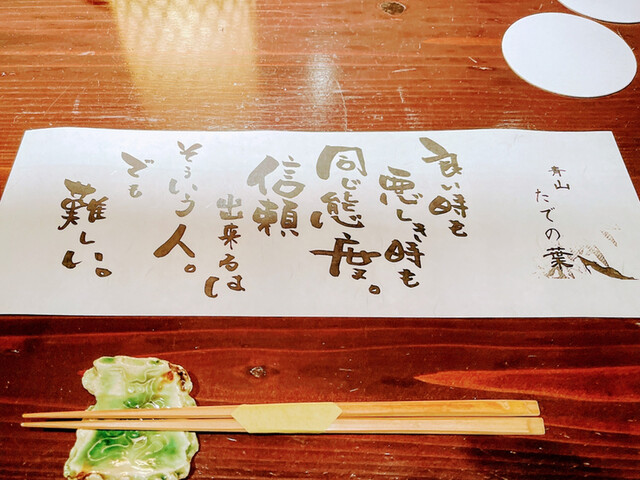 青山
たでの葉
良い時も
悪しき時も
同じ態度。
信頼
出来るは
そういう人。
でも
難しい。